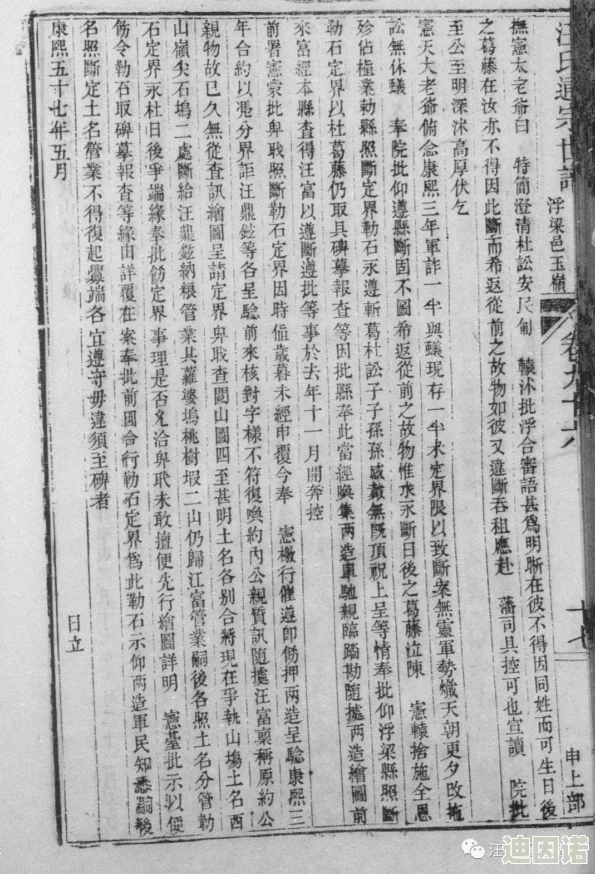 汪氏通宗世譜
浮梁邑玉嶺
卷九十六
十七
申上部
撫憲太老爺曰 特簡澄清杜訟安民制 轅沐批浮合審語甚爲明晰在彼不得因同姓而可生日後
之葛藤在汝亦不得因此斷而希返從前之故物如彼又違斷吞祖應赴 藩司具控可也宣讀 院批
至公至明深沐高厚伏乞
憲天大老爺俯念康熙三年軍詐一半與蟻現存一半未定界限以致斷案無靈軍勢熾天朝更夕改
訟無休蟻 奉院批仰遵縣斷固不圖希返從前之故物惟求永斷日後之葛藤泣陳 憲轅捨施全恩
殄佔植業勅縣照斷定界勒石永遵斬葛杜訟子子孫孫感戴無旣頂祝上呈等情奉批仰浮梁縣照斷
勒石定界以杜葛藤仍取具碑摹報查等因批縣奉此當經喚集两造單馳親臨踏勘随據两造繪圖前
來富經本縣查得汪富以遵斷遵批等事於去年十一月開奔控
前署憲蒙批卑職照斷勒石定界因時值歲暮未經申覆今奉 憲檄行催遵卽飭押两造呈驗康熙三
年合約以慿分界詎汪鼎鉉等各呈驗前來核對字樣不符復喚約内公親質訊随據汪富稟稱原約公
親物故已久無從查訊繪圖呈請定界卑職查閱山圖四至甚明土名各别合將現在爭執山塲土名西
山嶺尖石塢二處斷給汪鼎鉉納粮管業其蘿婆塢桃樹塅二山仍歸江富管業嗣後各照土名分管勒
石定界永杜日後爭端緣奉批飭定界事理是否允洽卑职未敢擅便先行繪圖詳明 憲臺批示以便
飭令勒石取碑摹報查等緣由詳覆在案奉批前因合行勒石定界爲此勒石示仰两造軍民知悉嗣後
名照斷定土名管業不得復起釁端各宜遵守毋違須至碑者
康熙五十七年五月 日立
汪
迪因诺